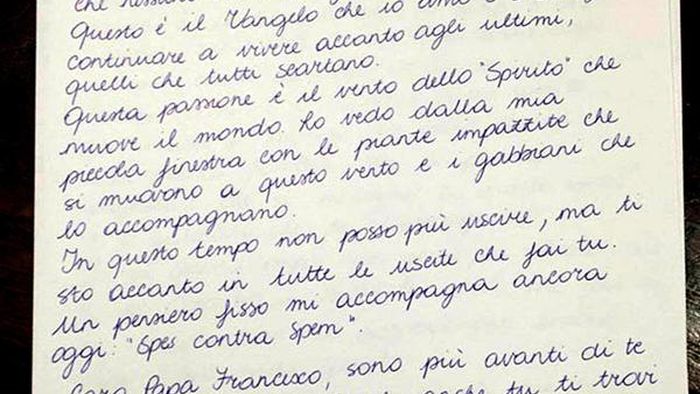 che nessuno
Questo è il Vangelo che io amo e
continuare a vivere accanto agli ultimi,
quelli che tutti scartano.
Questa passione è il vento dello "Spirito" che
muove il mondo. Lo vedo dalla mia
piccola finestra con le piante impazzite che
si muovono a questo vento e i gabbiani che
lo accompagnano.
In questo tempo non posso più uscire, ma ti
sto accanto in tutte le uscite che fai tu.
Un pensiero fisso mi accompagna ancora
oggi: "Spes contra Spem".
Caro Papa Francesco, sono più avanti di te
anche tu ti trovi